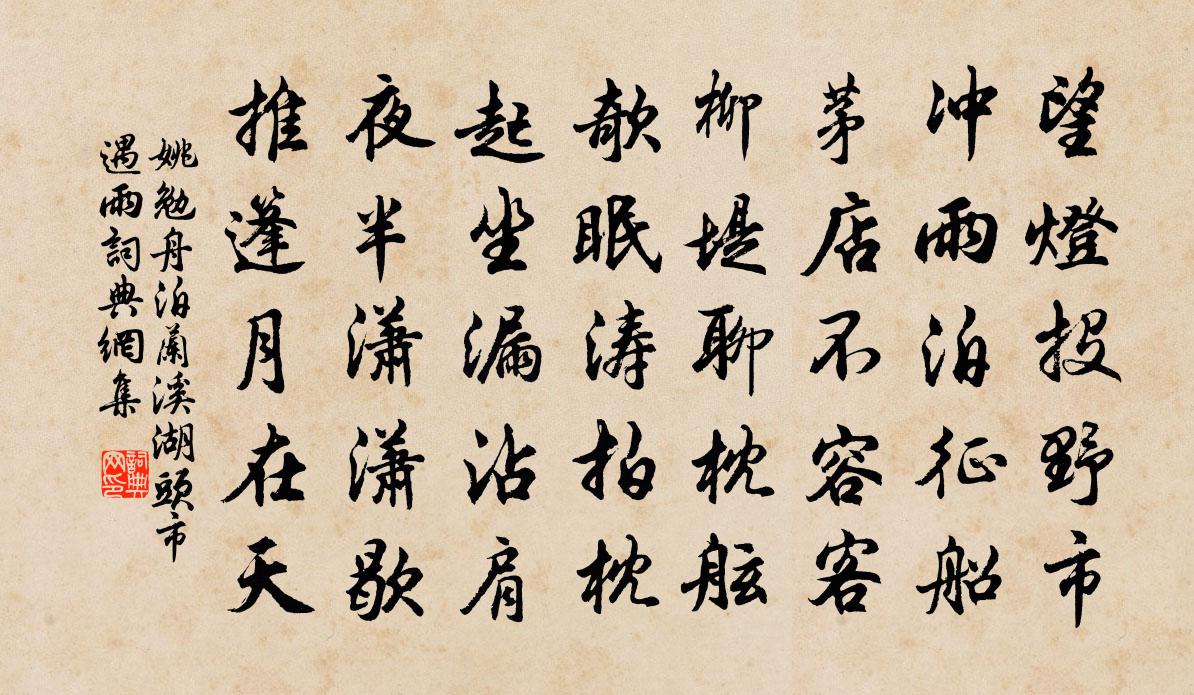 望燈投野市
冲雨泊征船
茅店不容客
柳堤聊枕舷
欹眠涛拍枕
起坐漏沾肩
夜半潇潇歇
推蓬月在天
姚勉舟泊蘭溪湖頭市
遇雨詞典網集
詞典
网印